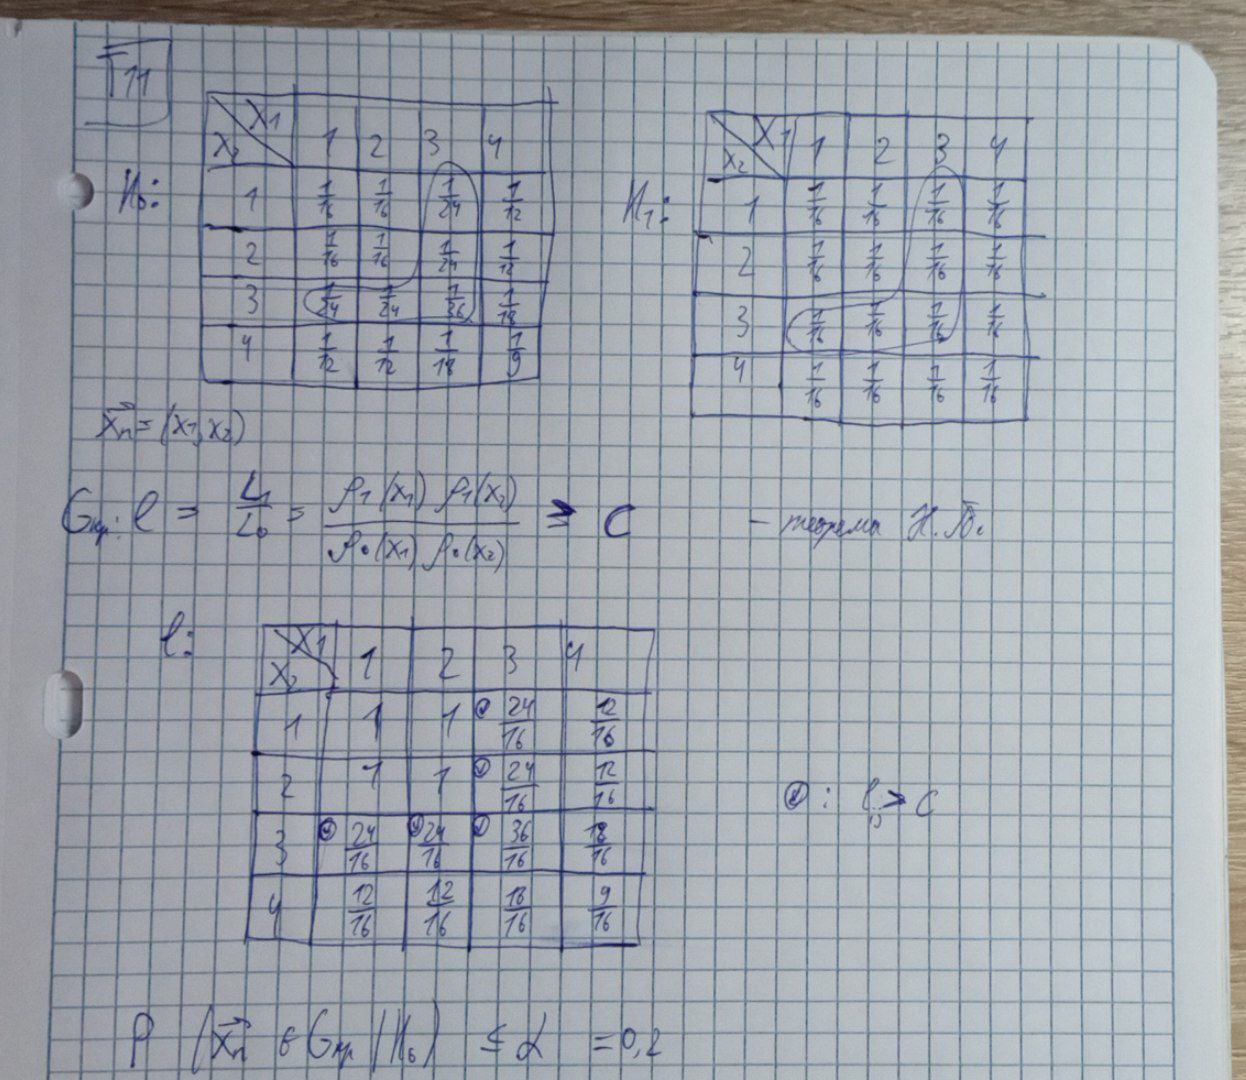 T11
H₀:
X₂ \ X₁ 1 2 3 4
1 1/16 1/16 1/24 1/12
2 1/16 1/16 1/24 1/12
3 1/24 1/24 1/36 1/18
4 1/12 1/12 1/18 1/9
H₁:
X₂ \ X₁ 1 2 3 4
1 1/16 1/16 1/16 1/16
2 1/16 1/16 1/16 1/16
3 1/16 1/16 1/16 1/16
4 1/16 1/16 1/16 1/16
x⃗n = (x₁, x₂)
Gкр: l = L₁/L₀ = ρ₁(x₁) ρ₁(x₂) / ρ₀(x₁) ρ₀(x₂) ≥ C - теорема Н.П.
l:
X₂ \ X₁ 1 2 3 4
1 1 1 24/16 12/16
2 1 1 24/16 12/16
3 24/16 24/16 36/16 18/16
4 12/16 12/16 18/16 9/16
✓: l > C
P (x⃗n ∈ Gкр | H₀) ≤ α = 0,2